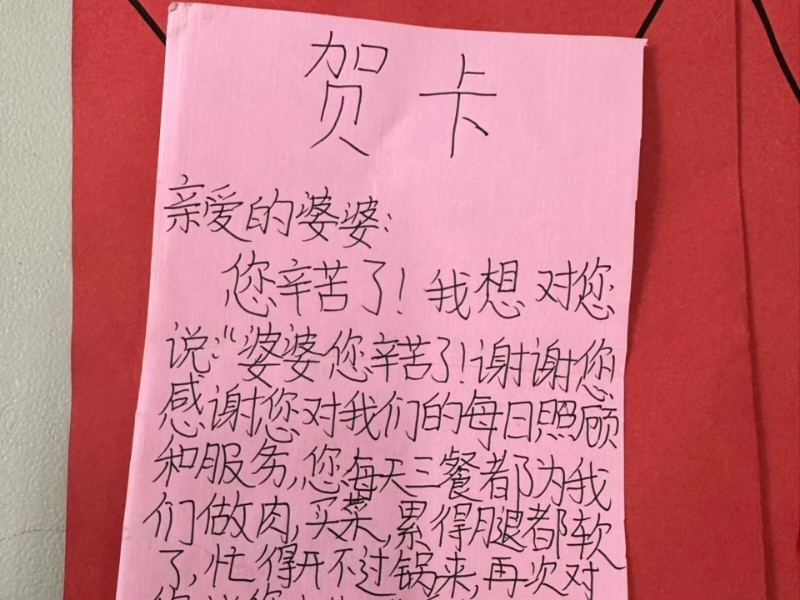 贺卡
亲爱的婆婆:
您辛苦了!我想对您
说:“婆婆您辛苦了!谢谢您
感谢您对我们的每日照顾
和服务,您每天三餐都为我
们做肉,买菜,累得腿都软
了,忙得开不过锅来,再次对